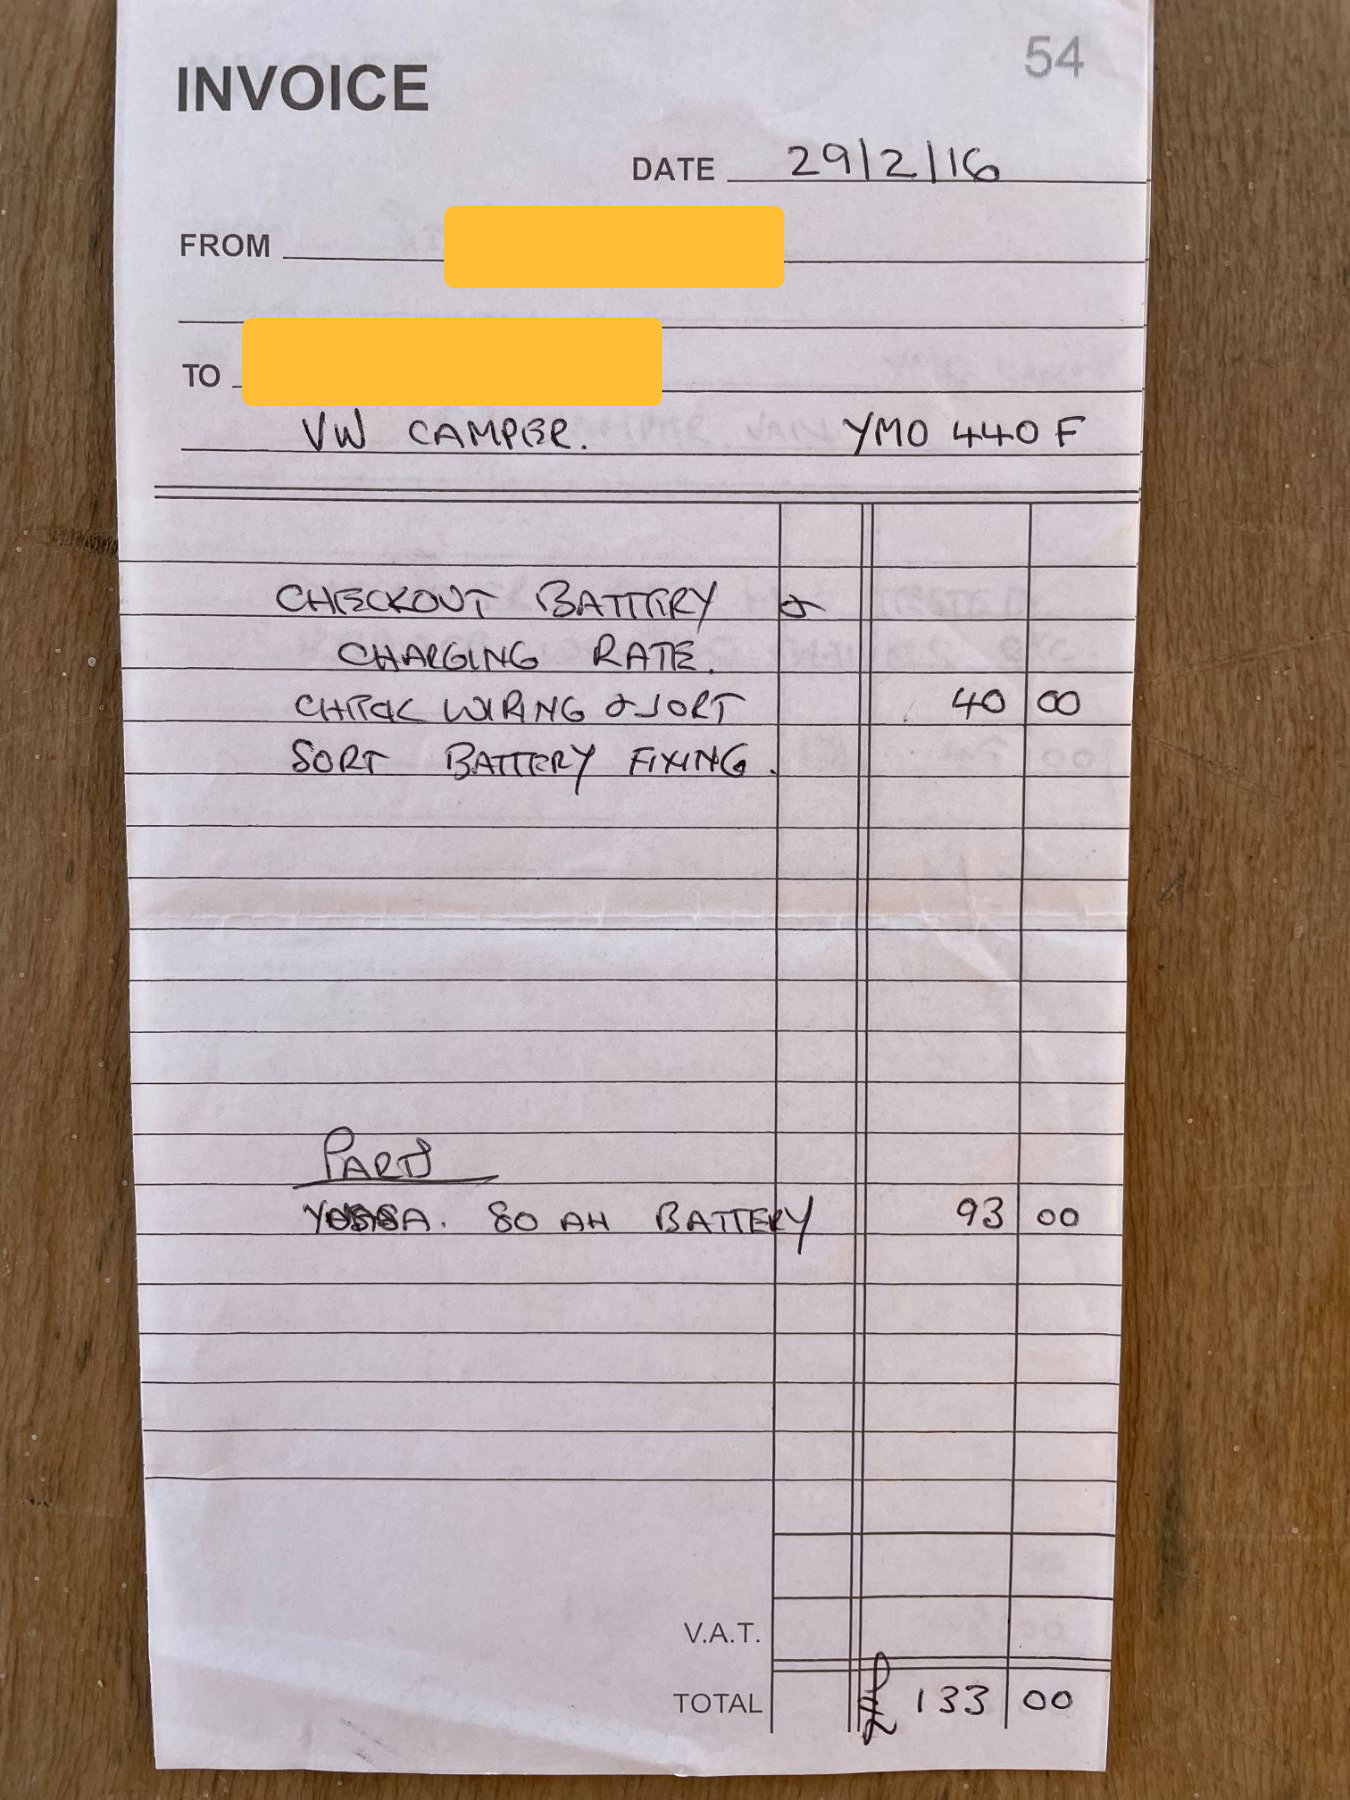 54
INVOICE
DATE 29/2/16
FROM
TO
VW CAMPER. YMO 440 F
CHECKOUT BATTERY &
CHARGING RATE.
CHECK WIRING & SORT 40 00
SORT BATTERY FIXING.
PARTS
80 AH BATTERY 93 00
V.A.T.
TOTAL £ 133 00